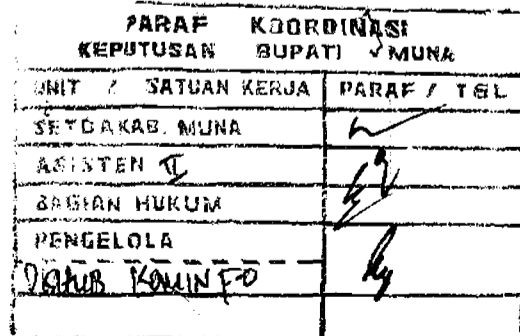 PARAF KOORDINASI
KEPUTUSAN BUPATI MUNA
UNIT / SATUAN KERJA PARAF / TGL
SETDAKAB. MUNA
ASISTEN II
BAGIAN HUKUM
PENGELOLA
DISHUB KOMINFO